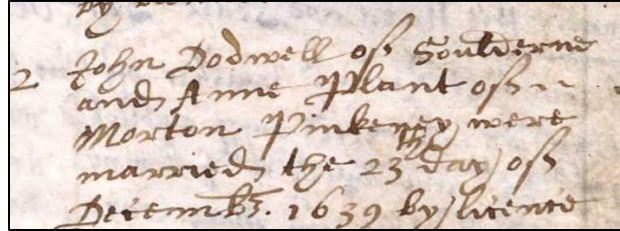 2 John Dodwell of Soulderne
and Anne Plant of
Morton Pinkeney were
married the 23th day of
Decemb. 1639 by licence